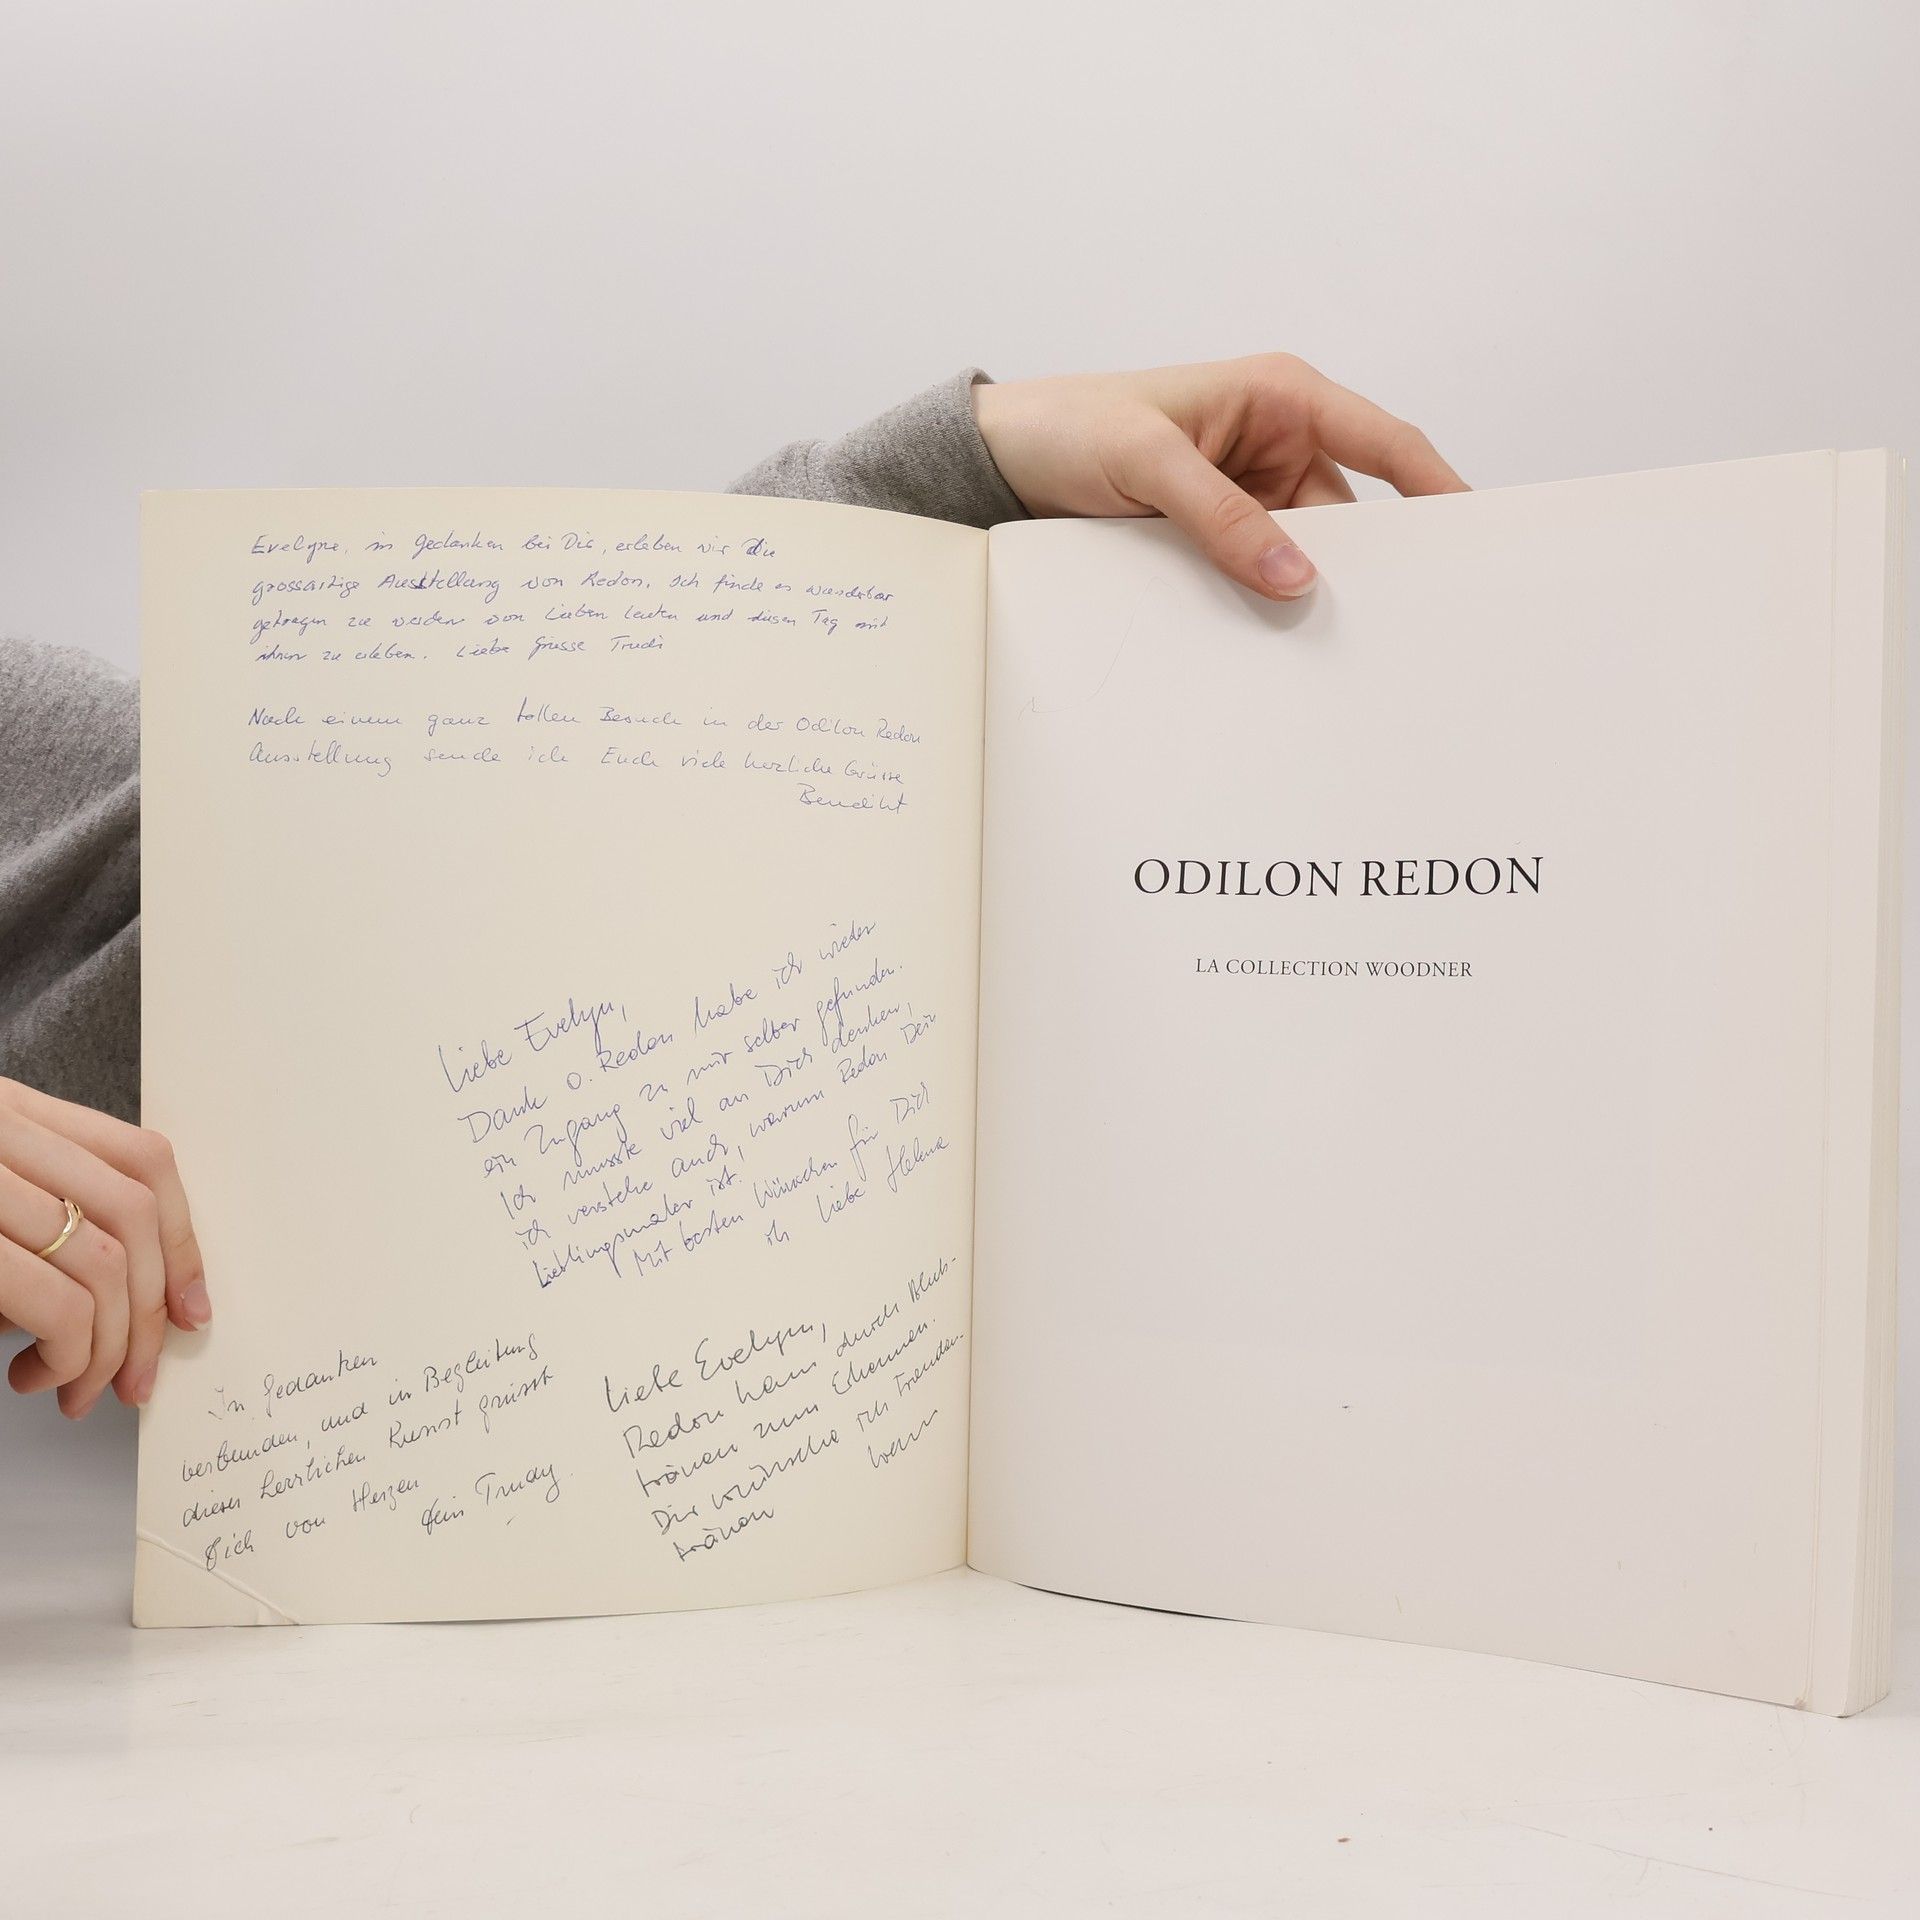 Evelyne, in Gedanken bei Dir, erleben wir die
grossartige Ausstellung von Redon. Ich finde es wunderbar
getragen zu werden von Lieben Leuten und diesen Tag mit
ihnen zu erleben. Liebe Grüsse Trudi
Nach einem ganz tollen Besuch in der Odilon Redon
Ausstellung sende ich Euch viele herzliche Grüsse
Benedikt
Liebe Evelyn,
Dank O. Redon habe ich wieder
ein Zugang zu mir selber gefunden.
Ich musste viel an Dich denken,
ich verstehe auch, warum Redon Dein
Lieblingsmaler ist.
Mit besten Wünschen für Dich
in Liebe Helena
In Gedanken
verbunden, und in Begleitung
dieser herrlichen Kunst grüsst
Dich von Herzen
Dein Trudy
Liebe Evelyn,
Redon kam durch Bluts-
tränen zum Erkennen.
Dir wünsche ich Freuden-
tränen
ODILON REDON
LA COLLECTION WOODNER